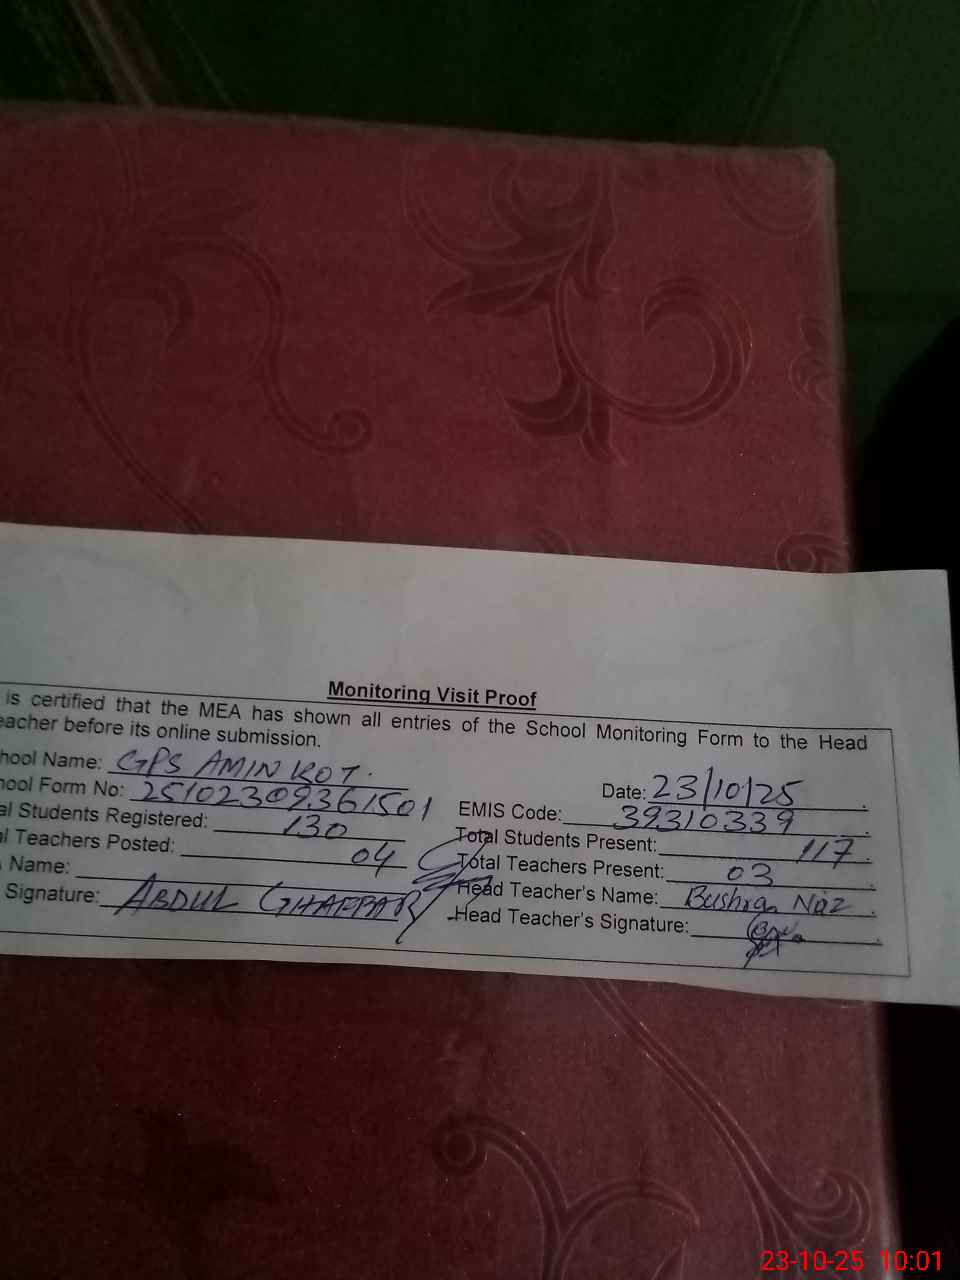 Monitoring Visit Proof
is certified that the MEA has shown all entries of the School Monitoring Form to the Head
eacher before its online submission.
hool Name: GPS AMIN KOT. Date: 23/10/25
hool Form No: 25102309361501 EMIS Code: 39310339
al Students Registered: 130 Total Students Present: 117
al Teachers Posted: 04 Total Teachers Present: 03
Name: Head Teacher's Name: Bushra Naz
Signature: ABDUL GHAFFAR Head Teacher's Signature:
23-10-25 10:01